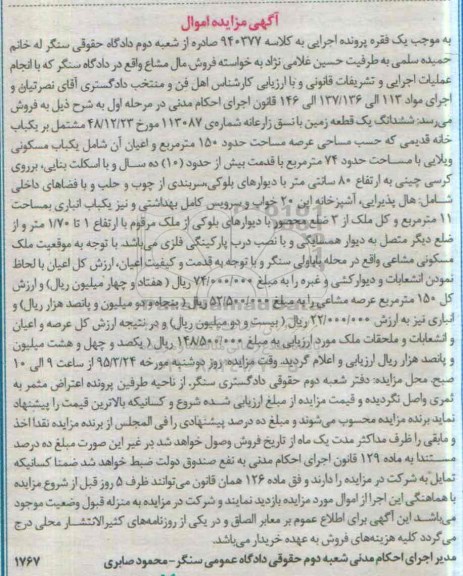 آگهی مزایده اموال
به موجب یک فقره پرونده اجرایی به کلاسه ۹۴۰۳۷۷ صادره از شعبه دوم دادگاه حقوقی سنگر له خانم
حمیده سلمی به طرفیت حسین غلامی نژاد به خواسته فروش مال مشاع واقع در دادگاه سنگر که با انجام
عملیات اجرایی و تشریفات قانونی و با ارزیابی کارشناس اهل فن و منتخب دادگستری آقای نصرتیان و
اجرای مواد 113 الی ۱۳۷/۱۳۶ الی ۱۴۶ قانون اجرای احکام مدنی در مرحله اول به شرح ذیل به فروش
می‌رسد: ششدانگ یک قطعه زمین با نسق زارعانه شماره‌ی ۱۱۳۰۸۷ مورخ ۴۸/۱۲/۲۳ مشتمل بر یکباب
خانه قدیمی که حسب مساحی عرصه مساحت حدود ۱۵۰ مترمربع و اعیان آن شامل یکباب مسکونی
ویلایی با مساحت حدود ۷۴ مترمربع با قدمت بیش از حدود (۱۰) ده سال و با اسکلت بنایی، برروی
کرسی چینی به ارتفاع ۸۰ سانتی متر با دیوارهای بلوکی، سربندی از چوب و حلب و با فضاهای داخلی
شامل: هال پذیرایی، آشپزخانه اپن ۲۰ خواب و سرویس کامل بهداشتی و نیز یکباب انباری بمساحت
۱۱ مترمربع و کل ملک از ۳ ضلع محصور با دیوارهای بلوکی از ملک مرقوم با ارتفاع ۱ تا ۱/۷۰ متر و از
ضلع دیگر متصل به دیوار همسایگی و با نصب درب پارکینگی فلزی می‌باشد. با توجه به موقعیت ملک
مسکونی مشاعی واقع در محله سنگر و با توجه به قدمت و کیفیت اعیان، ارزش کل اعیان با لحاظ
نمودن انشعابات و دیوارکشی و غیره را به مبلغ ۷۴/۰۰۰/۰۰۰ ریال ( هفتاد و چهار میلیون ریال) و ارزش
کل ۱۵۰ مترمربع عرصه مشاعی را به مبلغ ۵۲/۵۰۰/۰۰۰ ریال ( پنجاه و دو میلیون و پانصد هزار ریال) و
انباری نیز به ارزش ۲۲/۰۰۰/۰۰۰ ریال ( بیست و دو میلیون ریال) و در نتیجه ارزش کل عرصه و اعیان
و انشعابات و ملحقات ملک مورد ارزیابی به مبلغ ۱۴۸/۵۰۰/۰۰۰ ریال ( یکصد و چهل و هشت میلیون
و پانصد هزار ریال ارزیابی و اعلام گردید. وقت مزایده: روز دوشنبه مورخه ۹۵/۳/۲۴ از ساعت ۹ الی ۱۰
صبح. محل مزایده: دفتر شعبه دوم حقوقی دادگستری سنگر. از ناحیه طرفین پرونده اعتراض مثمر به
ثمری واصل نگردیده و قیمت مزایده از مبلغ ارزیابی شده شروع و کسانیکه بالاترین قیمت را پیشنهاد
نماید برنده مزایده محسوب می‌شوند و مبلغ ده درصد پیشنهادی را فی المجلس از برنده مزایده نقدا اخذ
و مابقی را ظرف مداکثر مدت یک ماه از تاریخ فروش وصول خواهد شد در غیر این صورت مبلغ ده درصد
مستندا به ماده ۱۲۹ قانون اجرای احکام مدنی به نفع صندوق دولت ضبط خواهد شد. ضمنا کسانیکه
تمایل به شرکت در مزایده را دارند و فق ماده ۱۲۶ همان قانون می‌توانند ظرف ۵ روز قبل از شروع مزایده
با هماهنگی این اجرا از اموال مورد مزایده بازدید نمایند و شرکت در مزایده به منزله قبول وضعیت موجود
می‌باشد. این آگهی برای اطلاع عموم بر معابر الصاق و در یکی از روزنامه‌های کثیرالانتشار محلی درج
می‌گردد کلیه هزینه‌های فروش به عهده خریدار می‌باشد.
مدیر اجرای احکام مدنی شعبه دوم حقوقی دادگاه عمومی سنگر- محمود صابری ۱۷۶۷